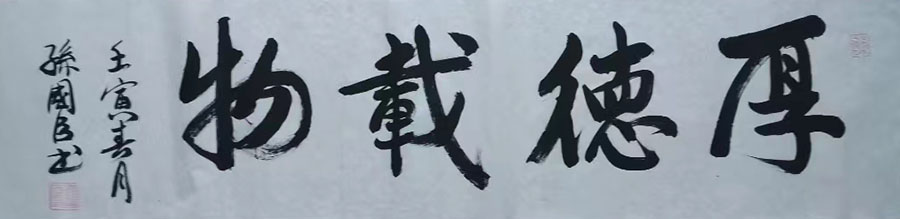 厚德載物
壬寅春月
孫國民书